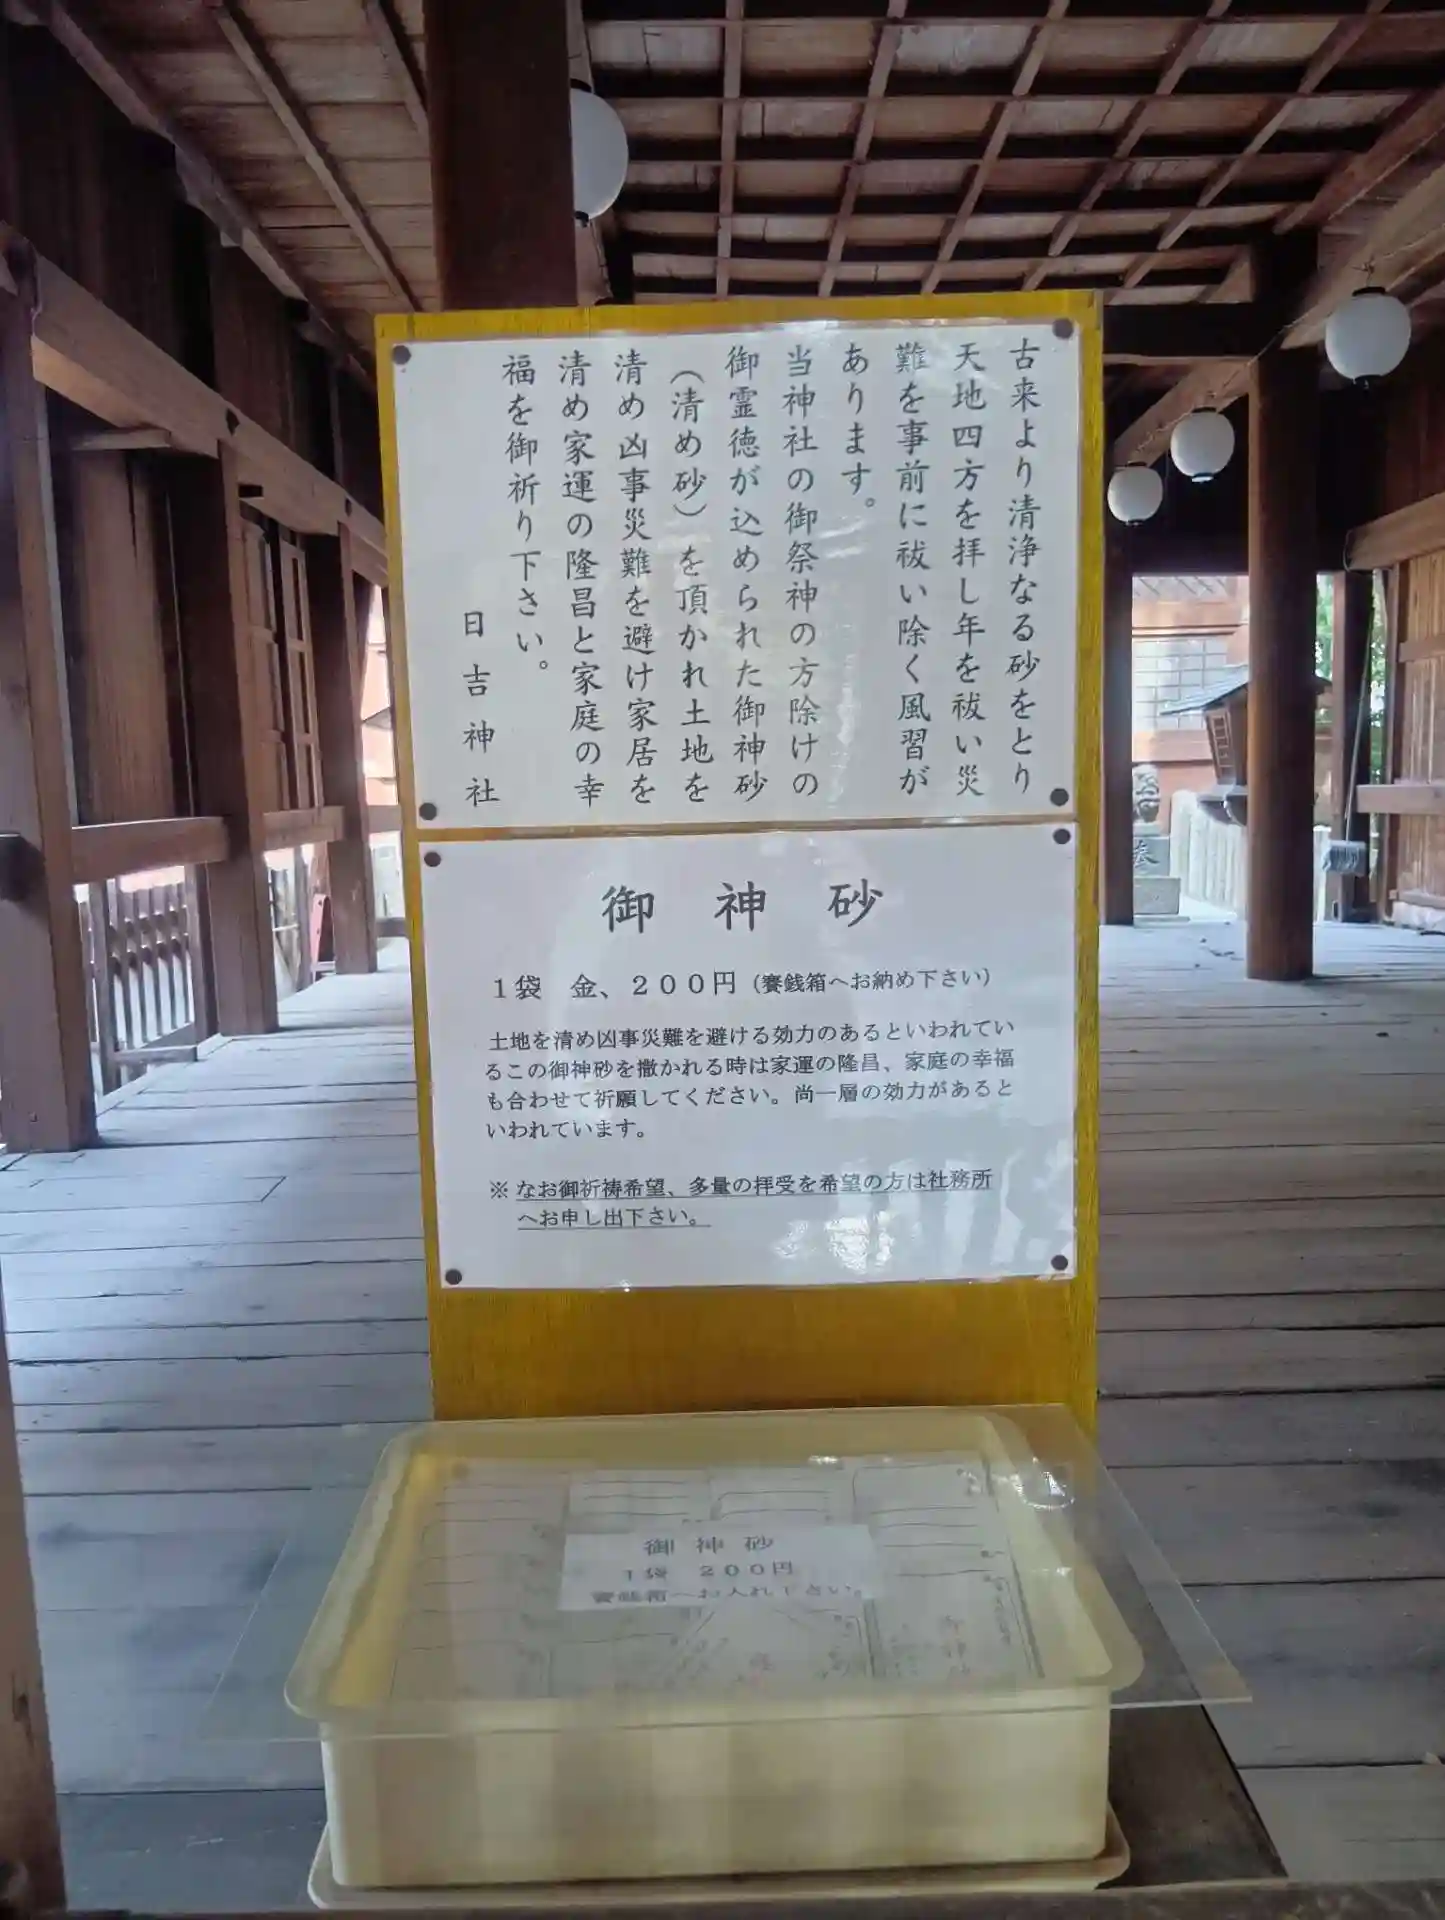 古来より清浄なる砂をとり
天地四方を拝し年を祓い災
難を事前に祓い除く風習が
あります。
当神社の御祭神の方除けの
御霊徳が込められた御神砂
(清め砂)を頂かれ土地を
清め凶事災難を避け家居を
清め家運の隆昌と家庭の幸
福を御祈り下さい。
日吉神社
御神砂
1袋 金、200円(賽銭箱へお納め下さい)
土地を清め凶事災難を避ける効力のあるといわれてい
るこの御神砂を撒かれる時は家運の隆昌、家庭の幸福
も合わせて祈願してください。尚一層の効力があると
いわれています。
※ なお御祈祷希望、多量の拝受を希望の方は社務所
へお申し出下さい。
御神砂
1袋 200円
賽銭箱へお入れ下さい。